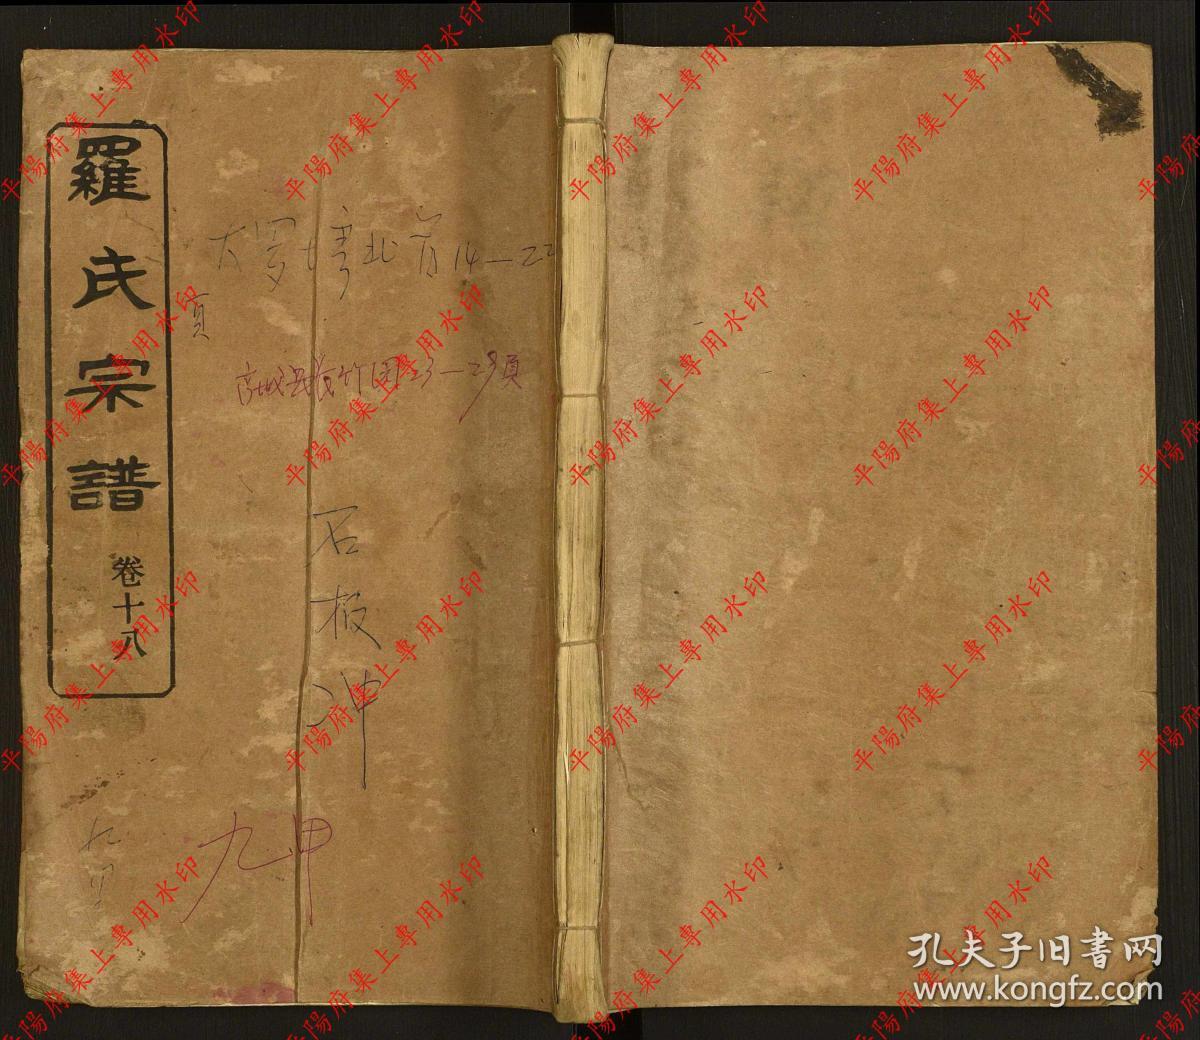 羅氏宗譜
卷十八
大罗塆北 14—22
頁
23—29頁
石板冲
九甲
平陽府集上專用水印
孔夫子旧書网
www.kongfz.com